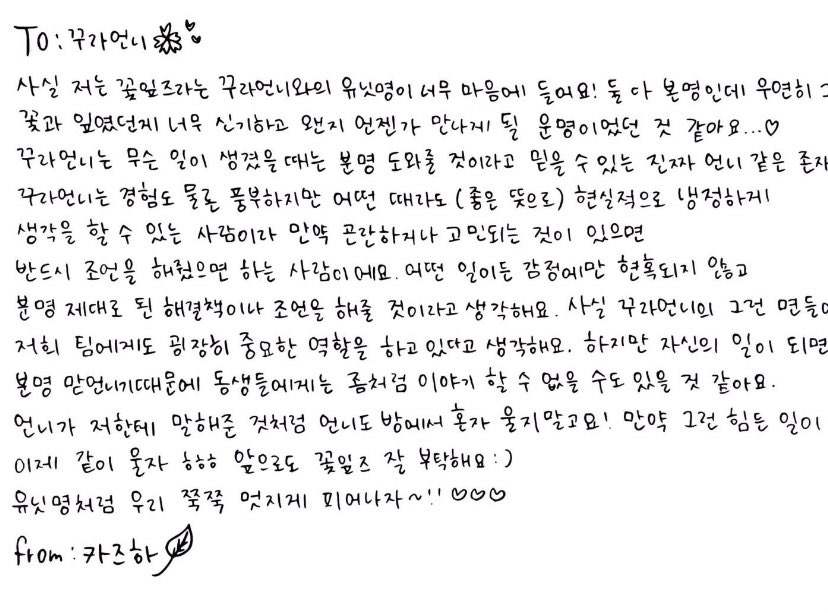 To: 꾸라언니
사실 저는 꽃잎즈라는 꾸라언니와의 유닛명이 너무 마음에 들어요! 둘 다 본명인데 우연히
꽃과 잎였던게 너무 신기하고 왠지 언젠가 만나게 될 운명이었던 것 같아요...♡
꾸라언니는 무슨 일이 생겼을 때는 분명 도와줄 것이라고 믿을 수 있는 진짜 언니 같은 존재
꾸라언니는 경험도 물론 풍부하지만 어떤 때라도 (좋은 뜻으로) 현실적으로 냉정하게
생각을 할 수 있는 사람이라 만약 곤란하거나 고민되는 것이 있으면
반드시 조언을 해줬으면 하는 사람이에요. 어떤 일이든 감정에만 현혹되지 않고
분명 제대로 된 해결책이나 조언을 해줄 것이라고 생각해요. 사실 꾸라언니의 그런 면들
저희 팀에게도 굉장히 중요한 역할을 하고 있다고 생각해요. 하지만 자신의 일이 되면
분명 맏언니기때문에 동생들에게는 좀처럼 이야기 할 수 없을 수도 있을 것 같아요.
언니가 저한테 말해준 것처럼 언니도 방에서 혼자 울지말고요! 만약 그런 힘든 일이
이제 같이 울자 ㅎㅎㅎ 앞으로도 꽃잎즈 잘 부탁해요:)
유닛명처럼 우리 쭉쭉 멋지게 피어나자~!! ♡♡♡
from: 카즈하